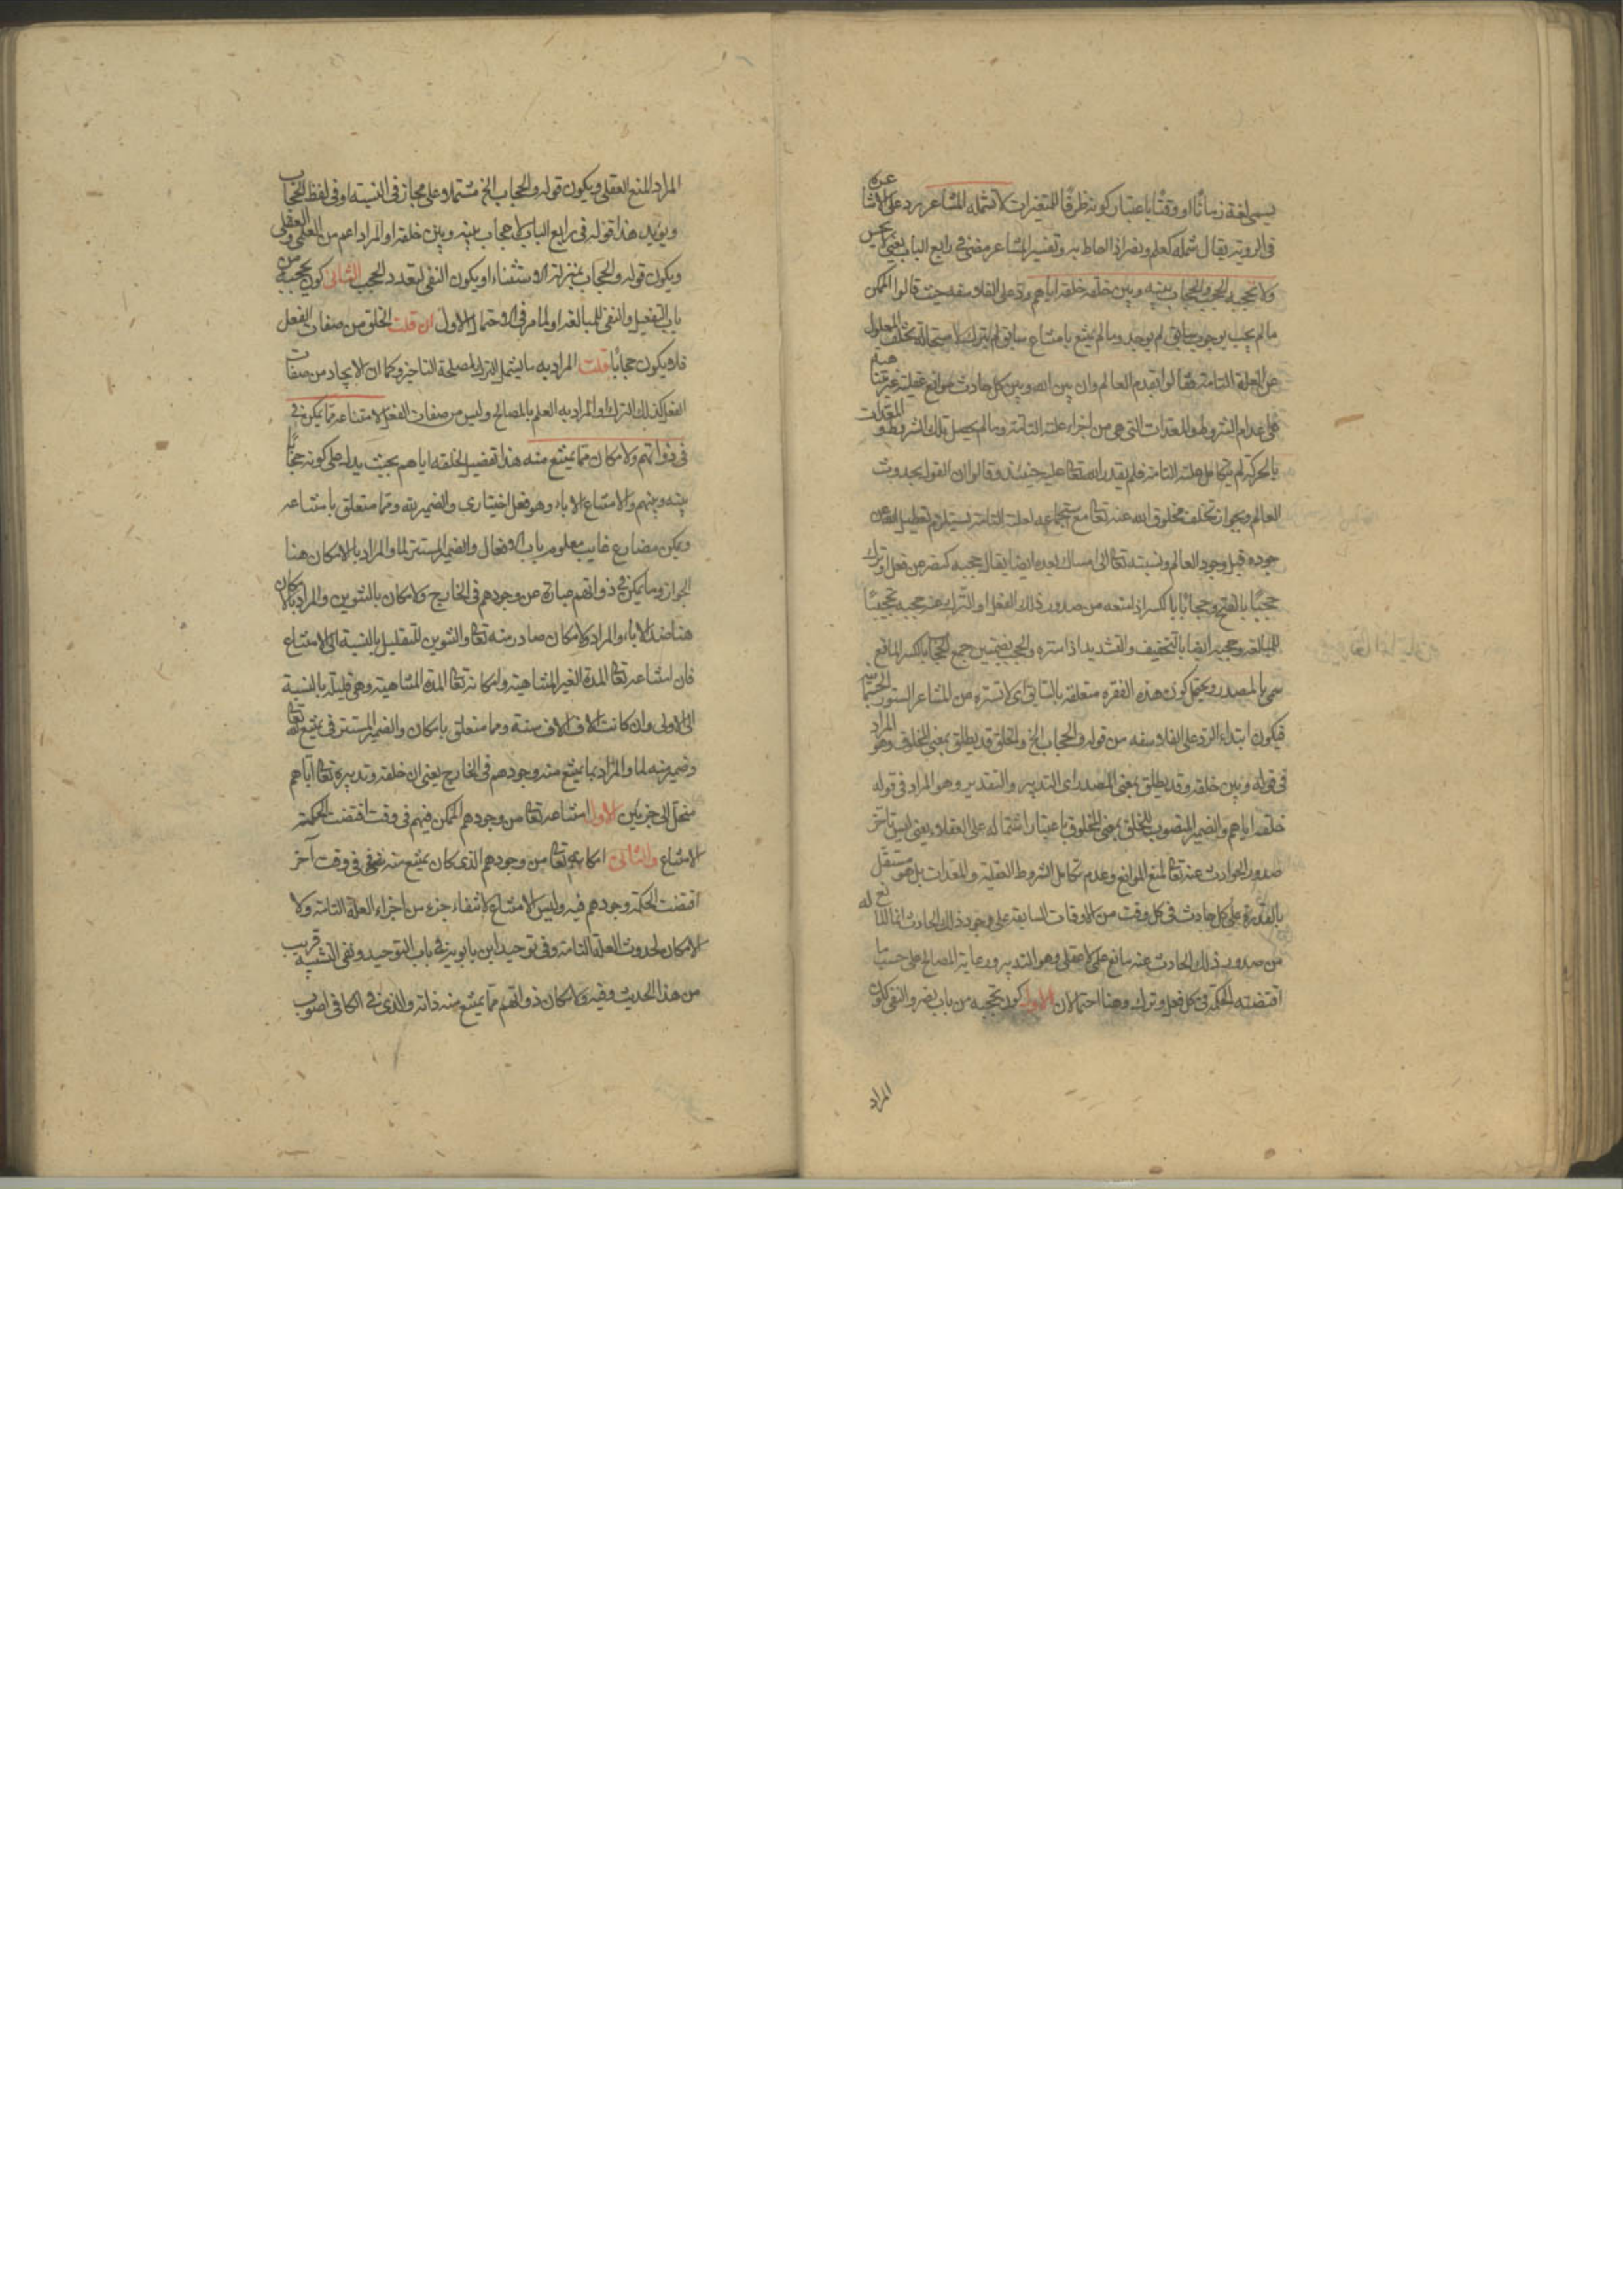 يسمى لغة زمانًا او وقتًا باعتبار كونه ظرفًا للمتغيرات لا تشمله المشاعر رد على الاشاعرة
فى الروية يقال شمله كعلم ونصر اذا احاط به وتفسير المشاعر مضى فى رابع الباب
ولا تحجبه الحجب والحجاب بينه وبين خلقه خلقه اياهم رد على الفلاسفه حيث قالوا الممكن
ما لم يجب بوجوب سابق لم يوجد وما لم يمتنع بامتناع سابق لم يترك لاستحالة تخلف المعلول
عن العلة التامة فقالوا بقدم العالم وان بين الله وبين كل حادث موانع عقلية
على اعدام الشروط والمعدات التى هى من اجزاء علته التامة وما لم يحصل تلك الشروط و المعدات
بالحركة لم يتكامل علته التامة فلم يقدر الله تعالى عليه حينئذ وقالوا ان القول بحدوث
العالم وبجواز تخلف مخلوق الله عنه تعالى مع استجماعه لعلته التامة يستلزم تعطيل الله عن
جوده قبل وجود العالم ونسبته تعالى الى امساك يده ايضا يقال حجبه كنصر عن فعل او ترك
حجبًا بالفتح وحجابًا بالكسر اذا منعه من صدور ذلك الفعل او الترك عنه وحجبه تحجيبًا
للمبالغة وحجبه ايضا بالتخفيف والتشديد اذا ستره والحجب بضمتين جمع الحجاب بالكسر المانع
سمى بالمصدر ويحتمل كون هذه الفقره متعلقة بالسابق اى لا تستره عن المشاعر الستور الجسمانية
فيكون ابتداء الرد على الفلاسفه من قوله والحجاب الخ والخلق قد يطلق بمعنى المخلوق وهو المراد
فى قوله وبين خلقه وقد يطلق بمعنى المصدر اى التدبير والتقدير وهو المراد فى قوله
خلقه اياهم والضمير المنصوب للخلق بمعنى المخلوق باعتبار اشتماله على العقلاء يعنى ليس تأخر
صدور الحوادث عنه تعالى لمنع الموانع وعدم تكامل الشروط العقلية والمعدات بل هو مستقل
بالقدرة على كل حادث فى كل وقت من الاوقات السابقة على وجود ذلك الحادث انما المانع له
من صدور ذلك الحادث عنه مانع علمى لا عقلى وهو التدبير ورعاية المصالح على حسب ما
اقتضته الحكمة فى كل فعل وترك وهنا احتمالان الاول كون تحجبه من باب نصر والنفى
المراد
المراد المنع العقلى ويكون قوله والحجاب الخ مشتملا على مجاز فى النسبة او فى لفظ الحجاب
ويؤيد هذا قوله فى رابع الباب لا حجاب بينه وبين خلقه او المراد اعم من العلمى والعقلى
ويكون قوله والحجاب بمنزلة الاستثناء او يكون النفى لتعدد الحجب الثانى كون تحجبه من
باب التفعيل والنفى للمبالغة او لما مر فى الاحتمال الاول ان قلت الخلق من صفات الفعل
فلا يكون حجابًا قلت المراد به ما يشمل الترك لمصلحة التاخير وكما ان الايجاد من صفات
الفعل كذلك الترك او المراد به العلم بالمصالح وليس من صفات الفعل لامتناعه مما يمكن فى
فى ذواتهم ولامكان مما يمتنع منه هذا تفصيل لخلقه اياهم بحيث يدل على كونه حجابًا
بينه وبينهم والامتناع الاباء وهو فعل اختيارى والضمير لله ومما متعلق بامتناعه
ويمكن مضارع غايب معلوم باب الافعال والضمير المستتر لما والمراد بالامكان هنا
الجواز وما يمكن فى ذواتهم عبارة عن وجودهم فى الخارج ولامكان بالتنوين والمراد بالامكان
هنا ضد الاباء والمراد ولامكان صادر منه تعالى والتنوين للتقليل بالنسبة الى الامتناع
فان امتناعه تعالى المدة الغير المتناهية وامكانه تعالى المدة المتناهية وهى قليلة بالنسبة
الى الاولى وان كانت الاف الاف سنة ومما متعلق بامكان والضمير المستتر فى يمتنع لله تعالى
وضمير منه لما والمراد بما يمتنع منه وجودهم فى الخارج يعنى ان خلقه وتدبيره تعالى اياهم
منحل الى جزئين الاول امتناعه تعالى من وجودهم الممكن فيهم فى وقت اقتضت الحكمة
الامتناع والثانى امكانه تعالى من وجودهم الذى كان يمتنع منه فى وقت آخر
اقتضت الحكمة وجودهم فيه وليس الامتناع لانتفاء جزء من اجزاء العلة التامة ولا
الامكان لحدوث العلة التامة وفى توحيد ابن بابويه فى باب التوحيد ونفى التشبيه قريب
من هذا الحديث وفيه ولامكان ذواتهم مما يمتنع منه ذاته والذى فى الكافى اصوب